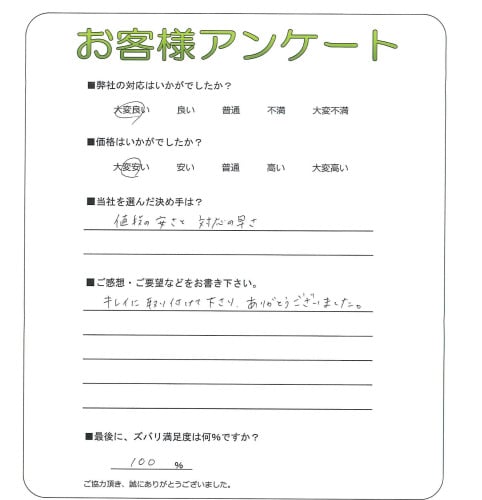 お客様アンケート
■弊社の対応はいかがでしたか？
大変良い 良い 普通 不満 大変不満
■価格はいかがでしたか？
大変安い 安い 普通 高い 大変高い
■当社を選んだ決め手は？
価格の安さと 対応の早さ
■ご感想・ご要望などをお書き下さい。
キレイに取り付けて下さり、ありがとうございました。
■最後に、ズバリ満足度は何％ですか？
100 ％
ご協力頂き、誠にありがとうございました。